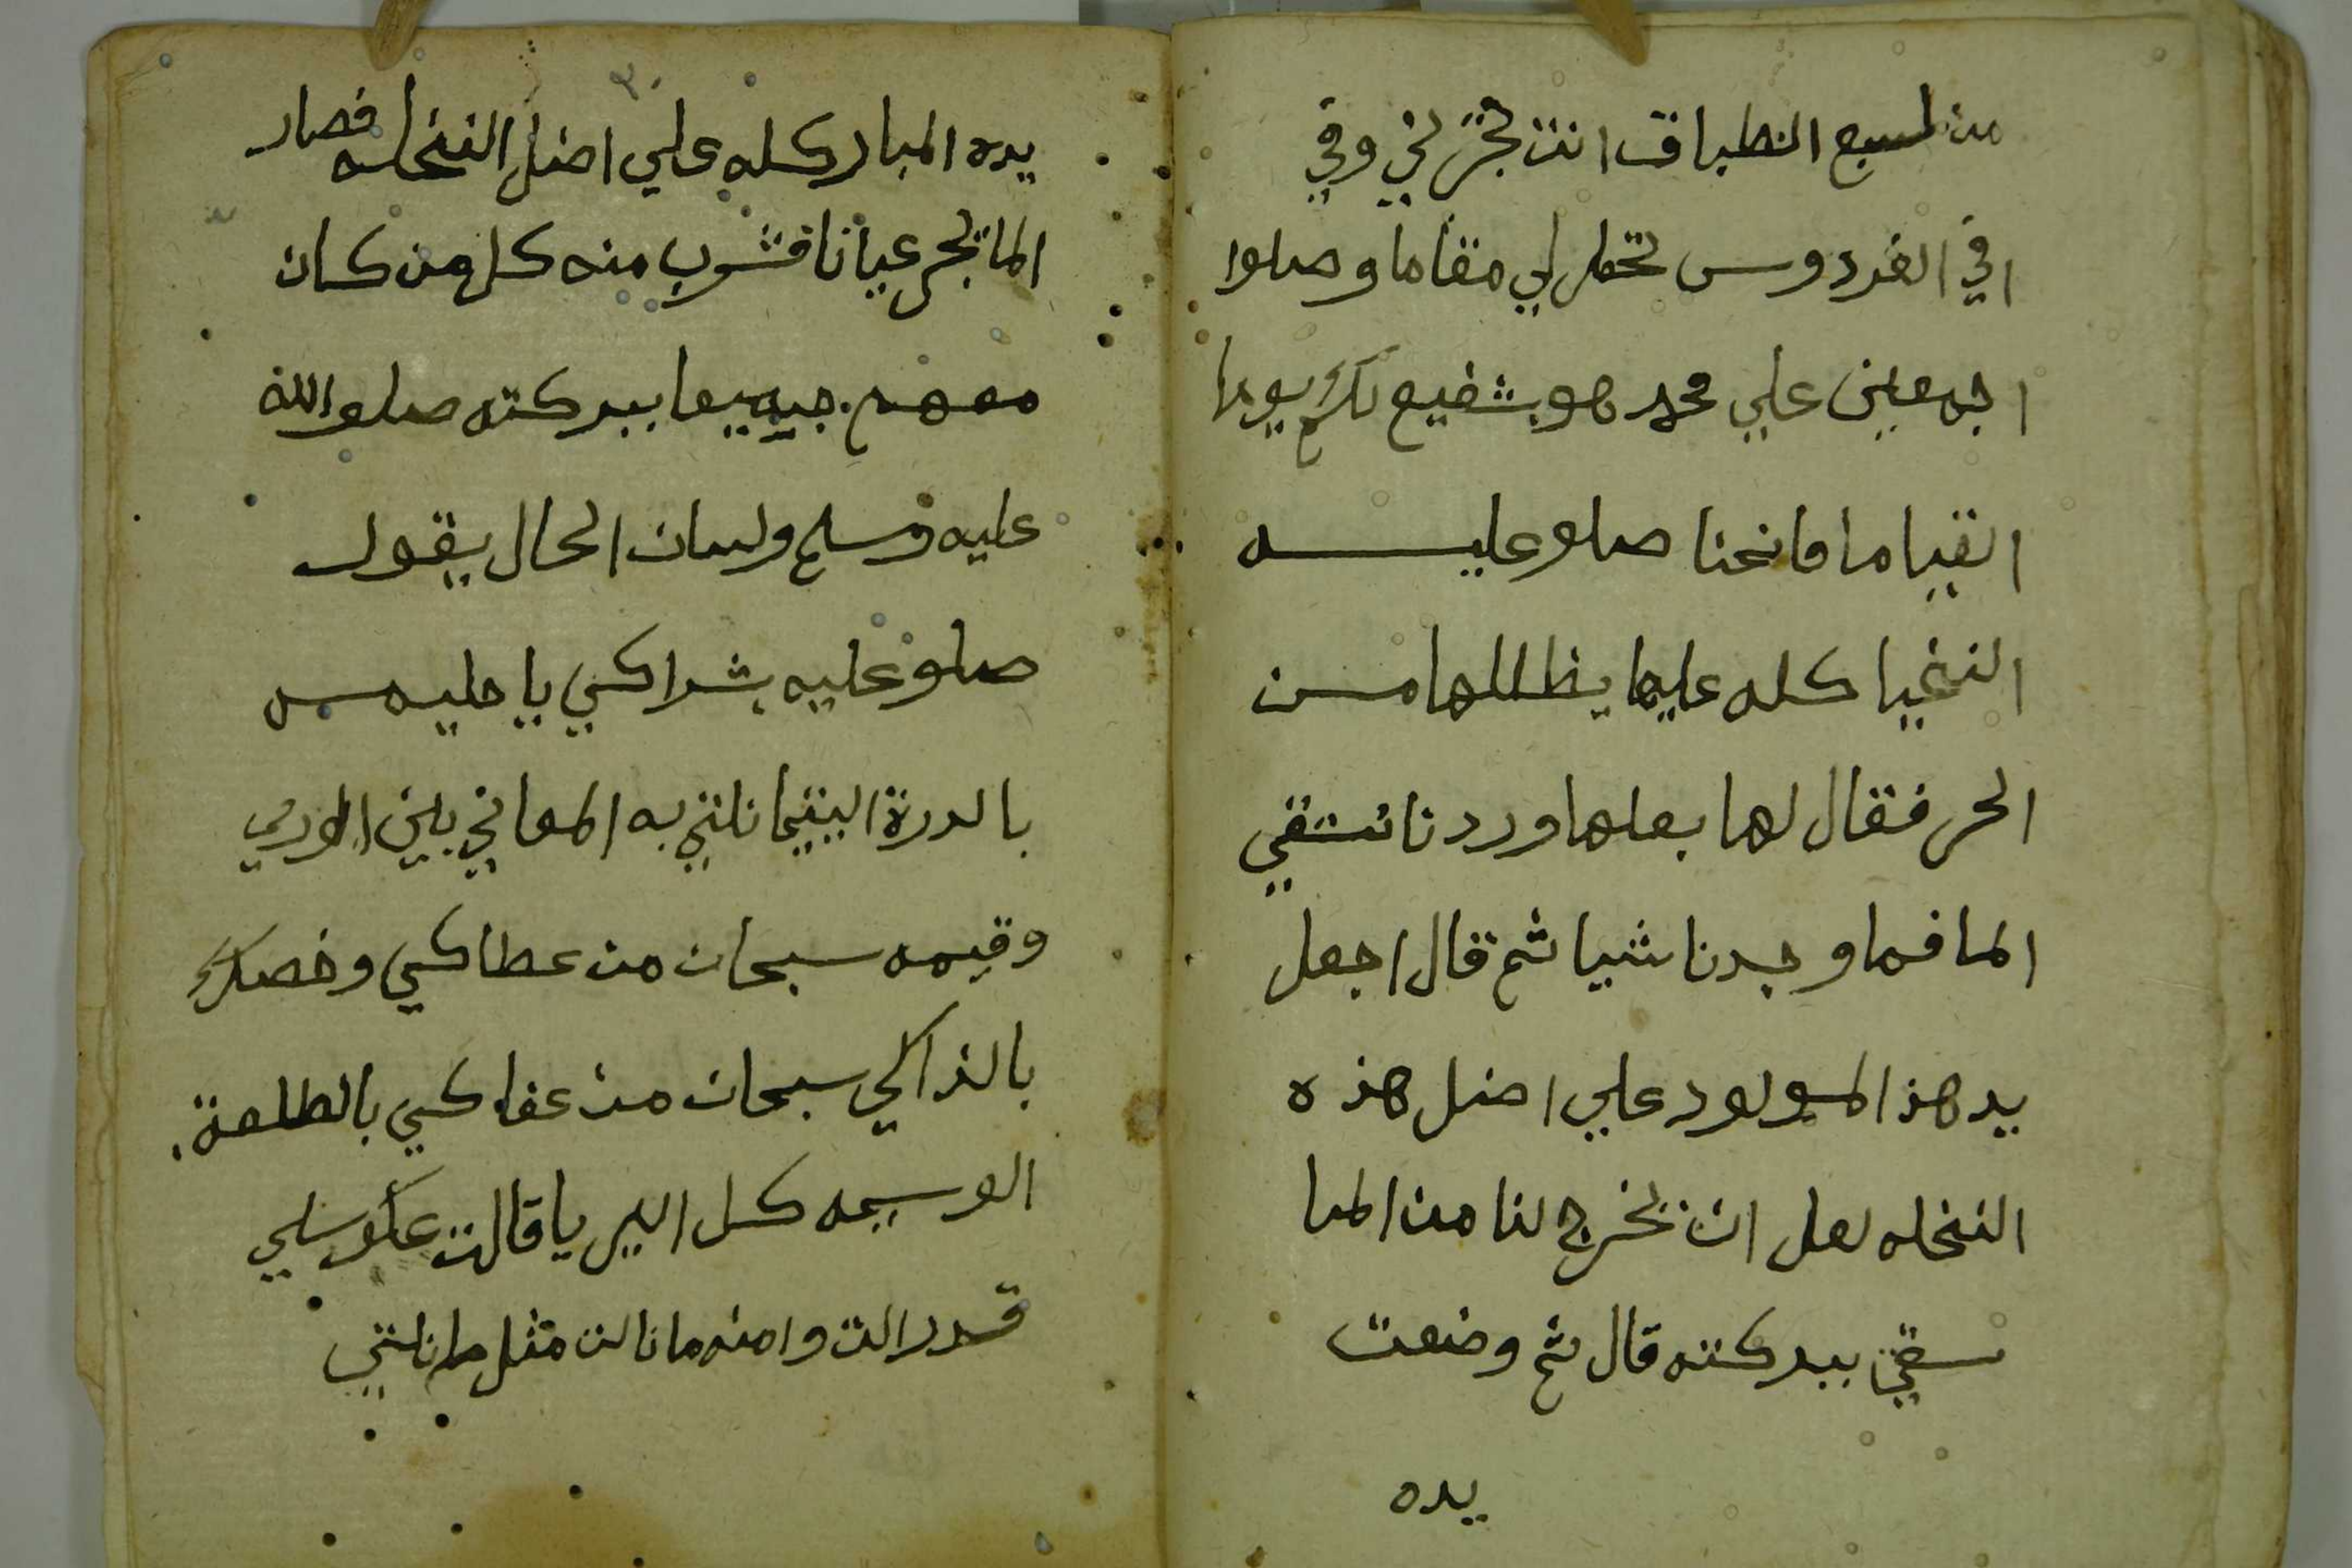 من لسبع الطباق انت تجرني وفي
افي الفردوس تحعل لي مقاما وصلوا
اجمعين علي محمد هو شفيع لكم يوما
القياما مانحنا صلو عليه
النخيا كله عليها يظللها من
الحر فقال لها بعلها وردنا نستقي
الما فما وجدنا شيا ثم قال اجعل
يد هذ المولود علي اصل هذه
النخله لعل ان يخرج لنا من الما
سقي ببركته قال ثم وضعت
يده
يده المباركه علي اصل النخله فصار
الما تجر عيانا فشرب منه كل من كان
معهم جميعا ببركته صلو الله
عليه وسلم ولسان الحال يقول
صلو عليه بشراكي يا حليمه
بالدرة اليتيما نلتي به المعاني بين الوري
وقيمه سبحان من عطاكي وخصك
بالذاكي سبحان من عفاكي بالطلعة
الوسيمه كل البريا قالت
قدرالت وامنه ما نالت مثل ما نلتي